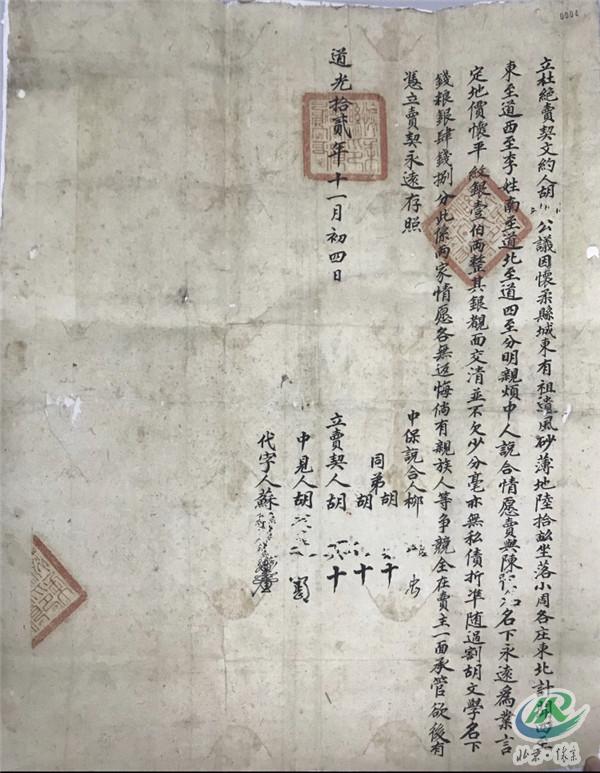 0004
立杜絕賣契文約人胡 公議因懷柔縣城東有祖遺風砂薄地陸拾畝坐落小周各庄東北計開四至
東至道西至李姓南至道北至道四至分明親煩中人說合情愿賣與陳 名下永遠為業言
定地價懷平紋銀壹伯兩整其銀覿面交清並不欠少分毫亦無私債折準隨過割胡文學名下
錢粮銀肆錢捌分此係兩家情愿各無返悔倘有親族人等爭競全在賣主一面承管欲後有
憑立賣契永遠存照
道光拾貳年十一月初四日
中保說合人柳
同弟胡 十
胡 十
立賣契人胡 十
中見人胡 劉
代字人蘇
北京·懷柔